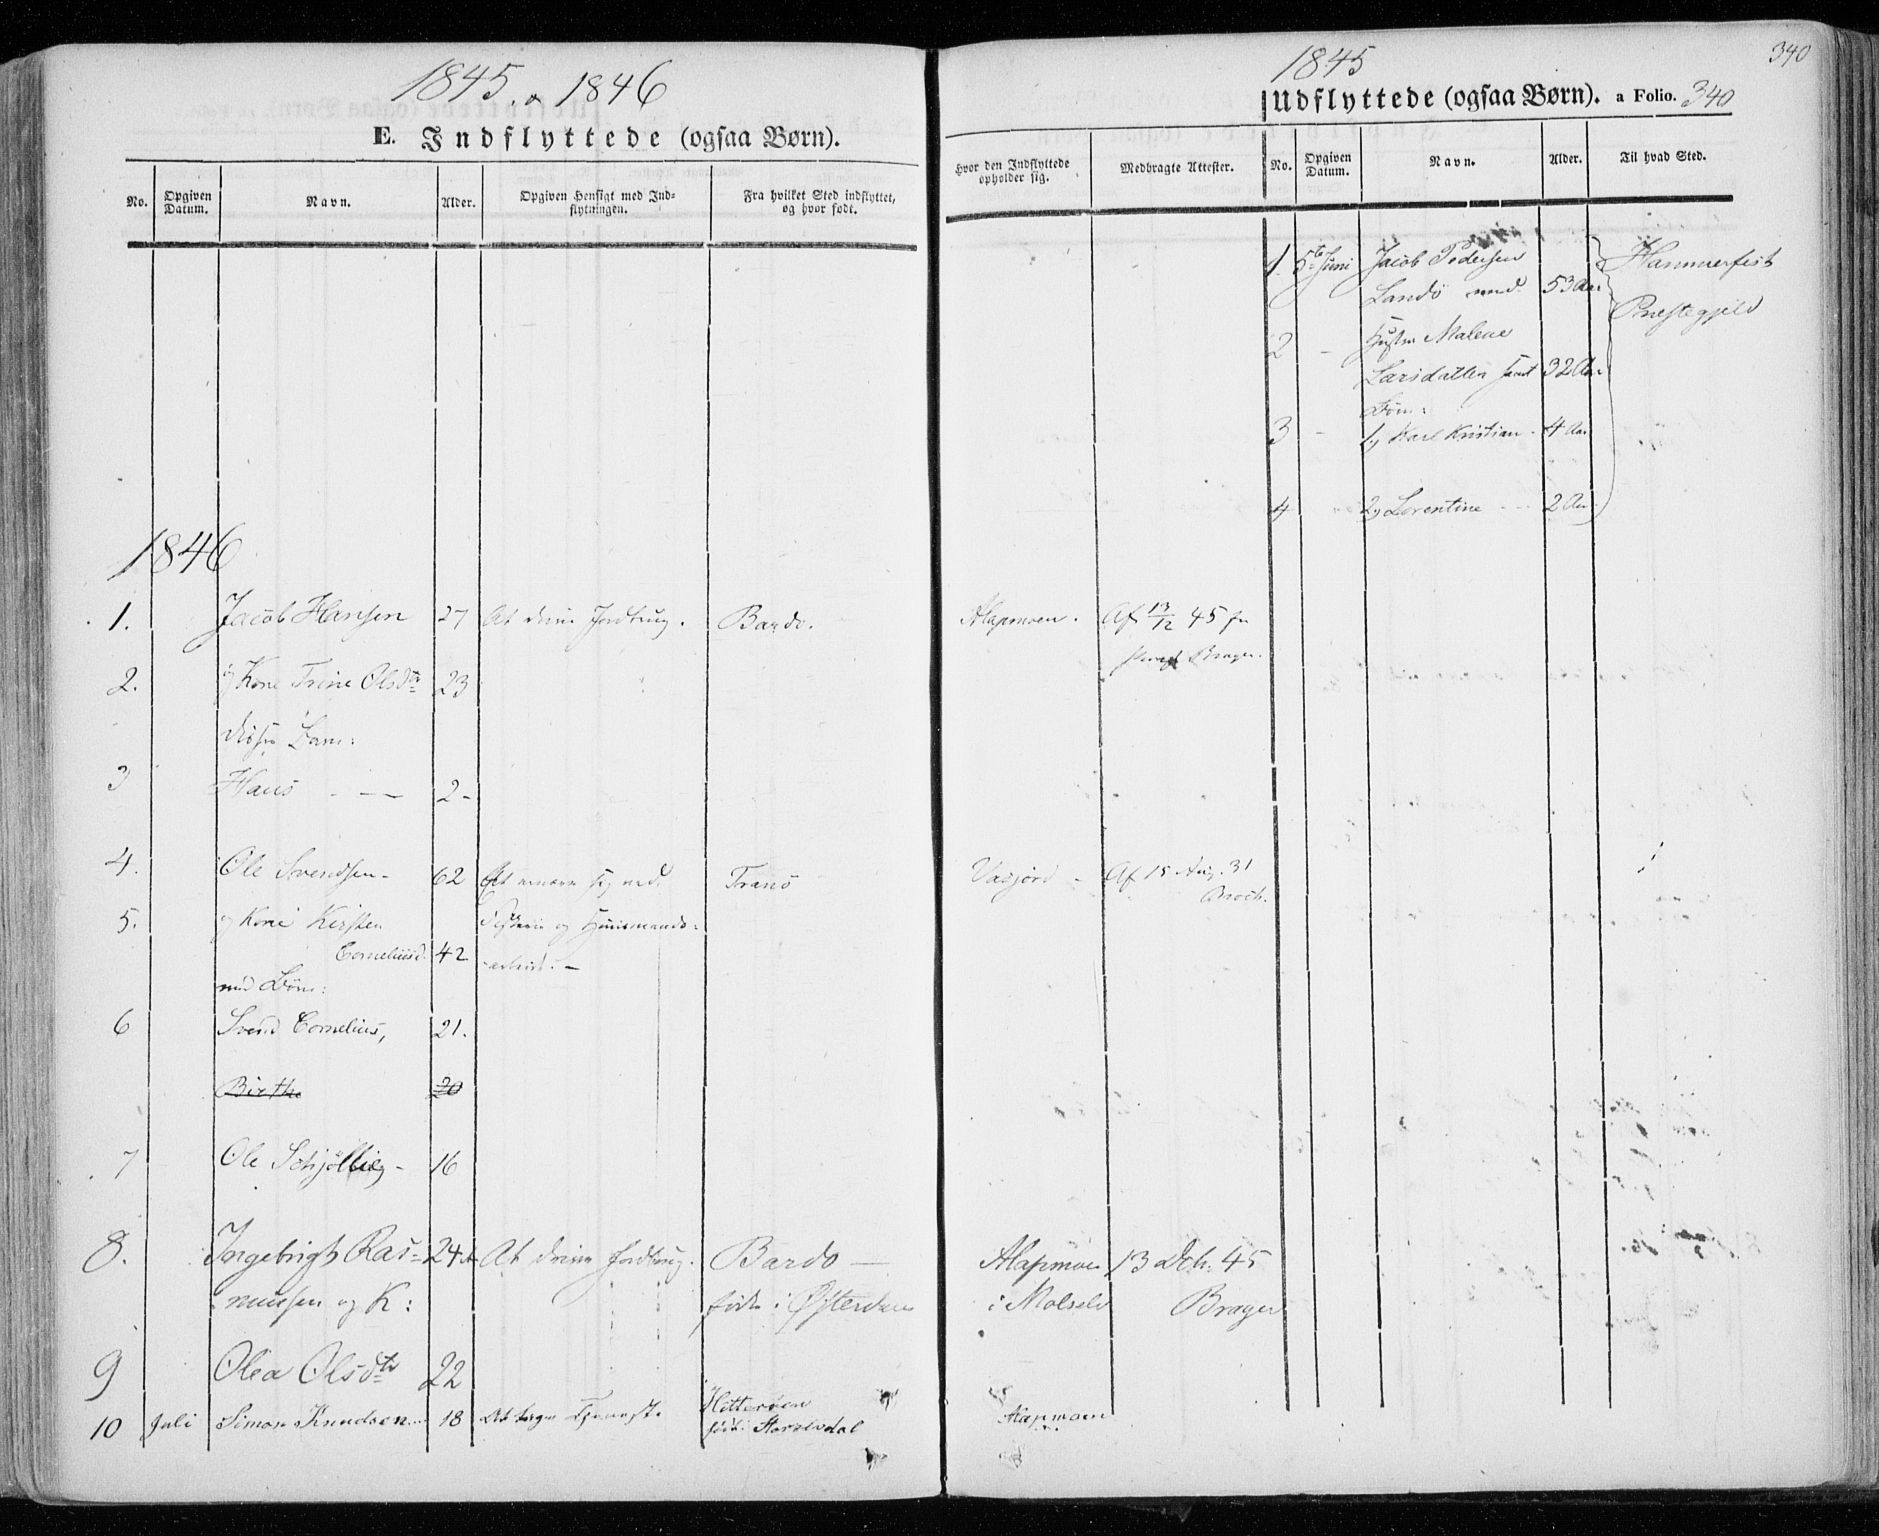 1845 & 1846
E. Indflyttede (ogsaa Børn).
No.
Opgiven Datum.
Navn.
Alder.
Opgiven Hensigt med Ind-
flytningen.
Fra hvilket Sted indflyttet,
og hvor født.
1846
1. Jacob Hansen 27 At drive Jordbrug. Bardo.
2. og Kone Trine Olsdtr 23
disses Barn:
3 Hans - — 2 -
4. Ole Svendsen - 62 At ernære sig ved Tranö
5. og Kone Kirsten Fiskeri og Huusmands-
Corneliusd. 42 -arbeid. -
med Börn:
6 Svend Cornelius, 21.
Birthe 20
7 Ole Schjölberg - 16
8. Ingebrigt Ras- 24 At drive Jordbrug. Bardo —
musen og K: föde i Østerdalen
9 Olea Olsdtr 22
10 Juli Simon Knudsen 18 At tage Tjeneste Hitterøen
föd: Størendal
340
1845
Udflyttede (ogsaa Børn). a Folio. 340
Hvor den Indflyttede
opholder sig.
Medbragte Attester.
No.
Opgiven
Datum.
Navn.
Alder.
Til hvad Sted.
1. 5te Juni Jacob Pedersen Hammerfest
Landö med 53 Aar Præstegjeld
2 - Hustru Malene
Larsdatter samt 32 Aar
Börn:
3 - 1) Karl Kristian - 4 Aar
4 2) Lorentine - - - 2 Aar
Alapmoen. Af 13/12 45 fra
Brager.
Vasjord - Af 15 Aug. 31
Broch.
Alapmoen 13 Dcb: 45
i Molselv Brager
Alapmoen